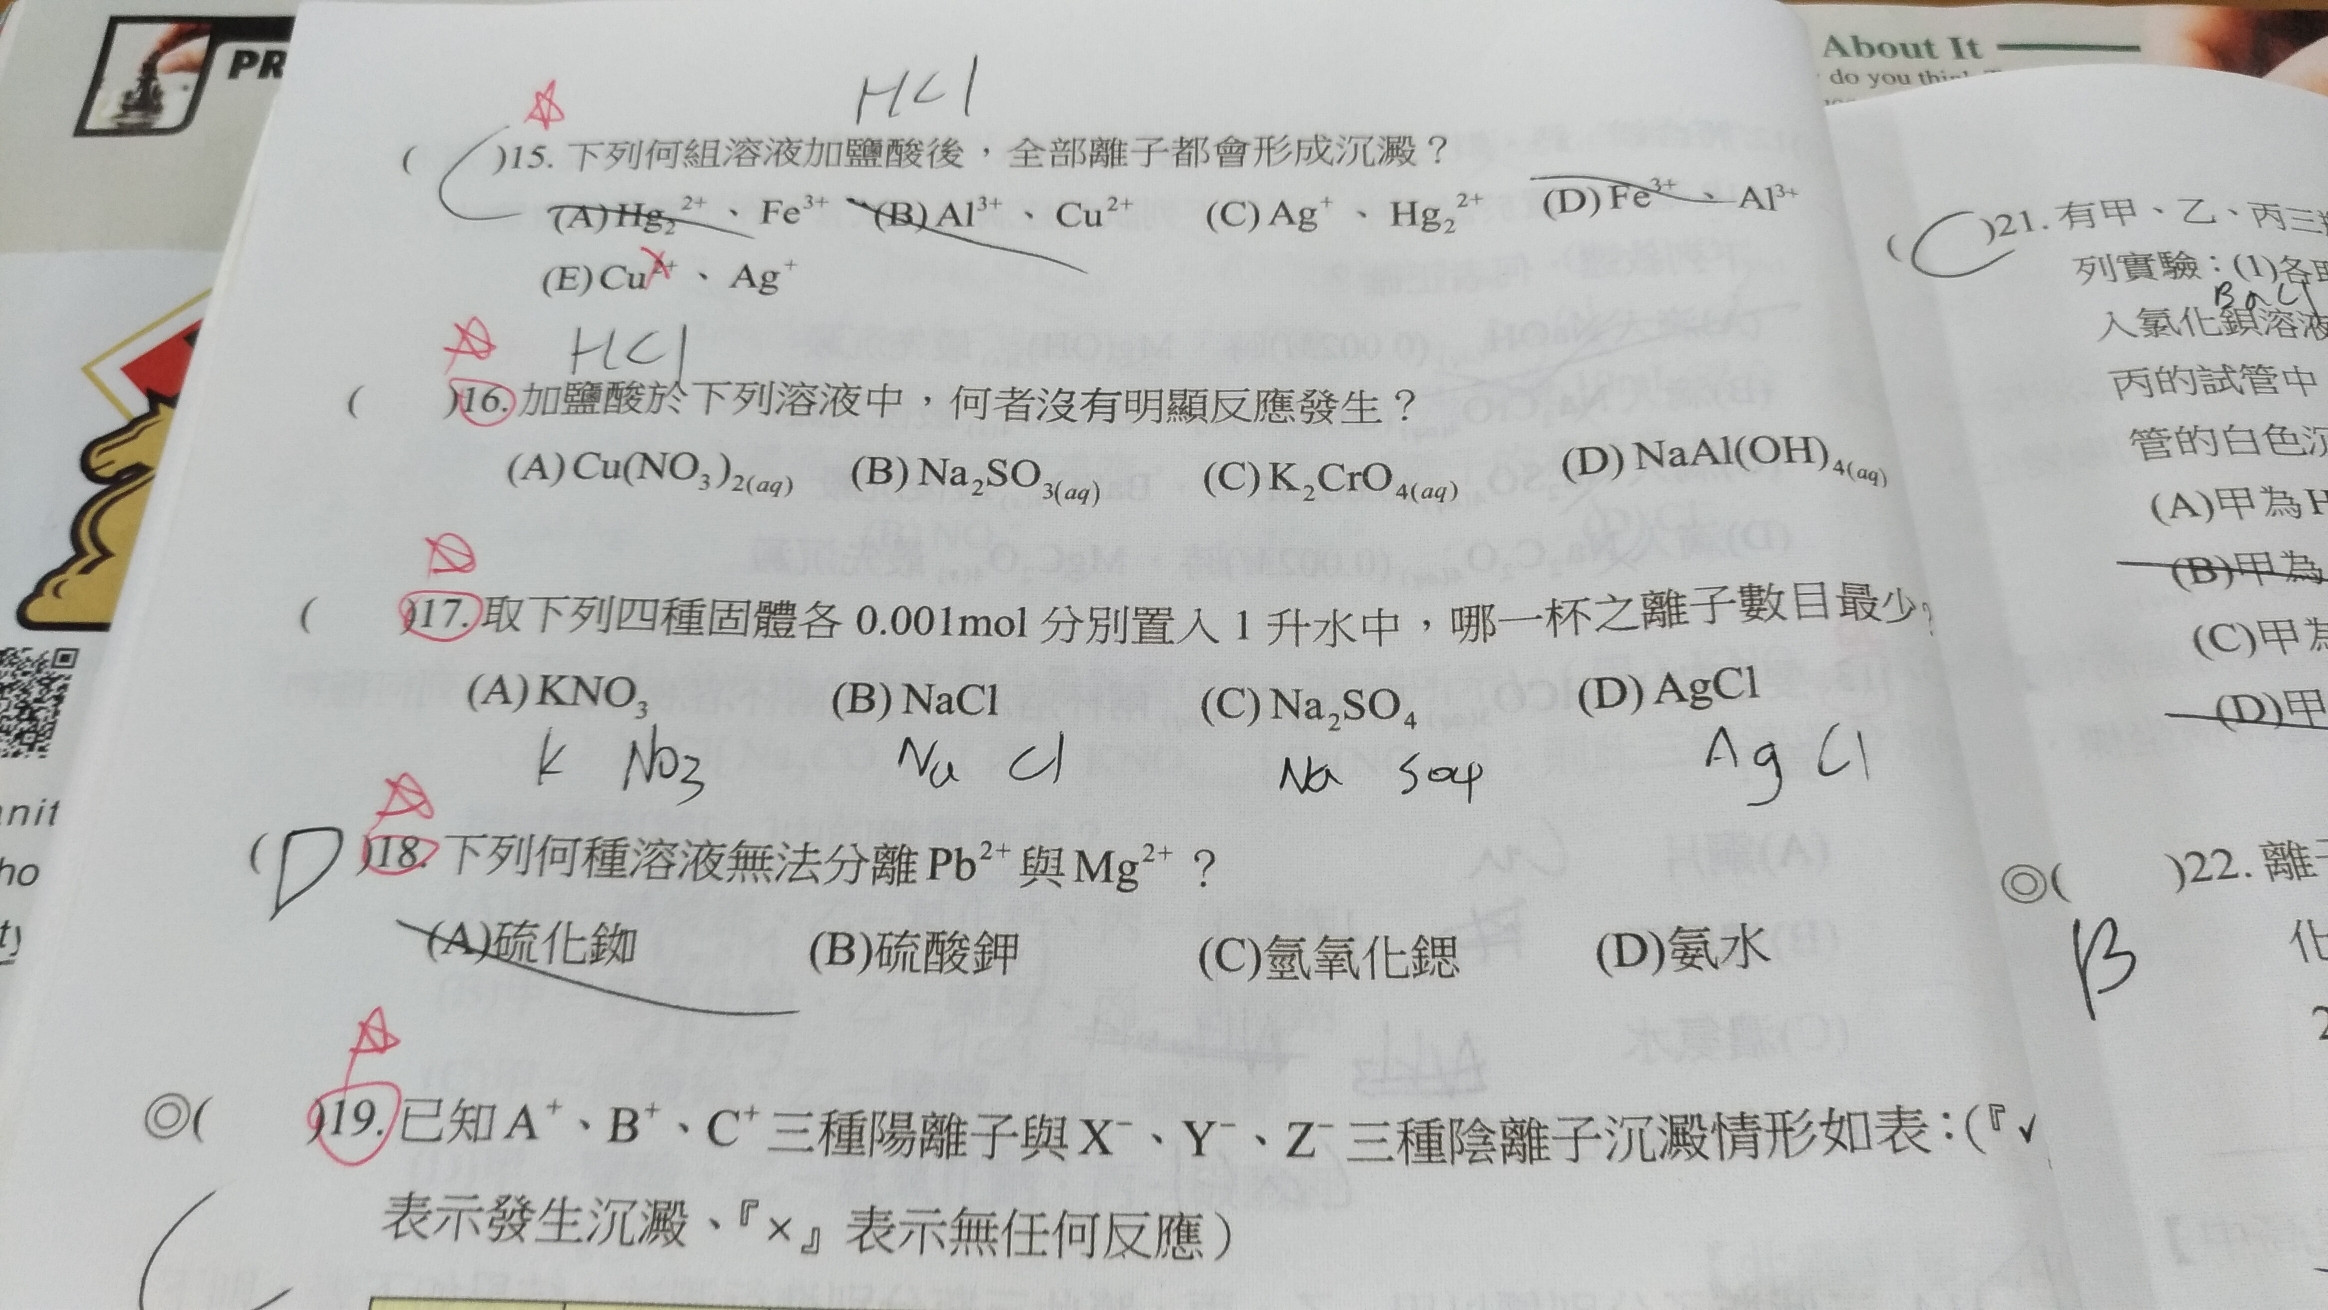 PR
About It
do you
HCl
( C )15. 下列何組溶液加鹽酸後，全部離子都會形成沉澱？
(A)Hg₂²⁺、Fe³⁺ (B)Al³⁺、Cu²⁺ (C)Ag⁺、Hg₂²⁺ (D)Fe³⁺、Al³⁺
(E)Cu²⁺、Ag⁺
HCl
( )16. 加鹽酸於下列溶液中，何者沒有明顯反應發生？
(A)Cu(NO₃)₂(aq) (B)Na₂SO₃(aq) (C)K₂CrO₄(aq) (D)NaAl(OH)₄(aq)
( )17. 取下列四種固體各 0.001mol 分別置入 1 升水中，哪一杯之離子數目最少？
(A)KNO₃ (B)NaCl (C)Na₂SO₄ (D)AgCl
K NO3 Na Cl Na SO4 Ag Cl
( D )18. 下列何種溶液無法分離Pb²⁺與Mg²⁺？
(A)硫化銣 (B)硫酸鉀 (C)氫氧化鍶 (D)氨水
◎( )19. 已知A⁺、B⁺、C⁺三種陽離子與X⁻、Y⁻、Z⁻三種陰離子沉澱情形如表：(『✓
表示發生沉澱、『×』表示無任何反應)
( C )21. 有甲、乙、丙三
列實驗：(1)各
BaCl
入氯化鋇溶液
丙的試管中
管的白色沉
(A)甲為H
(B)甲為
(C)甲為
(D)甲
◎( )22. 離子
B
化
2